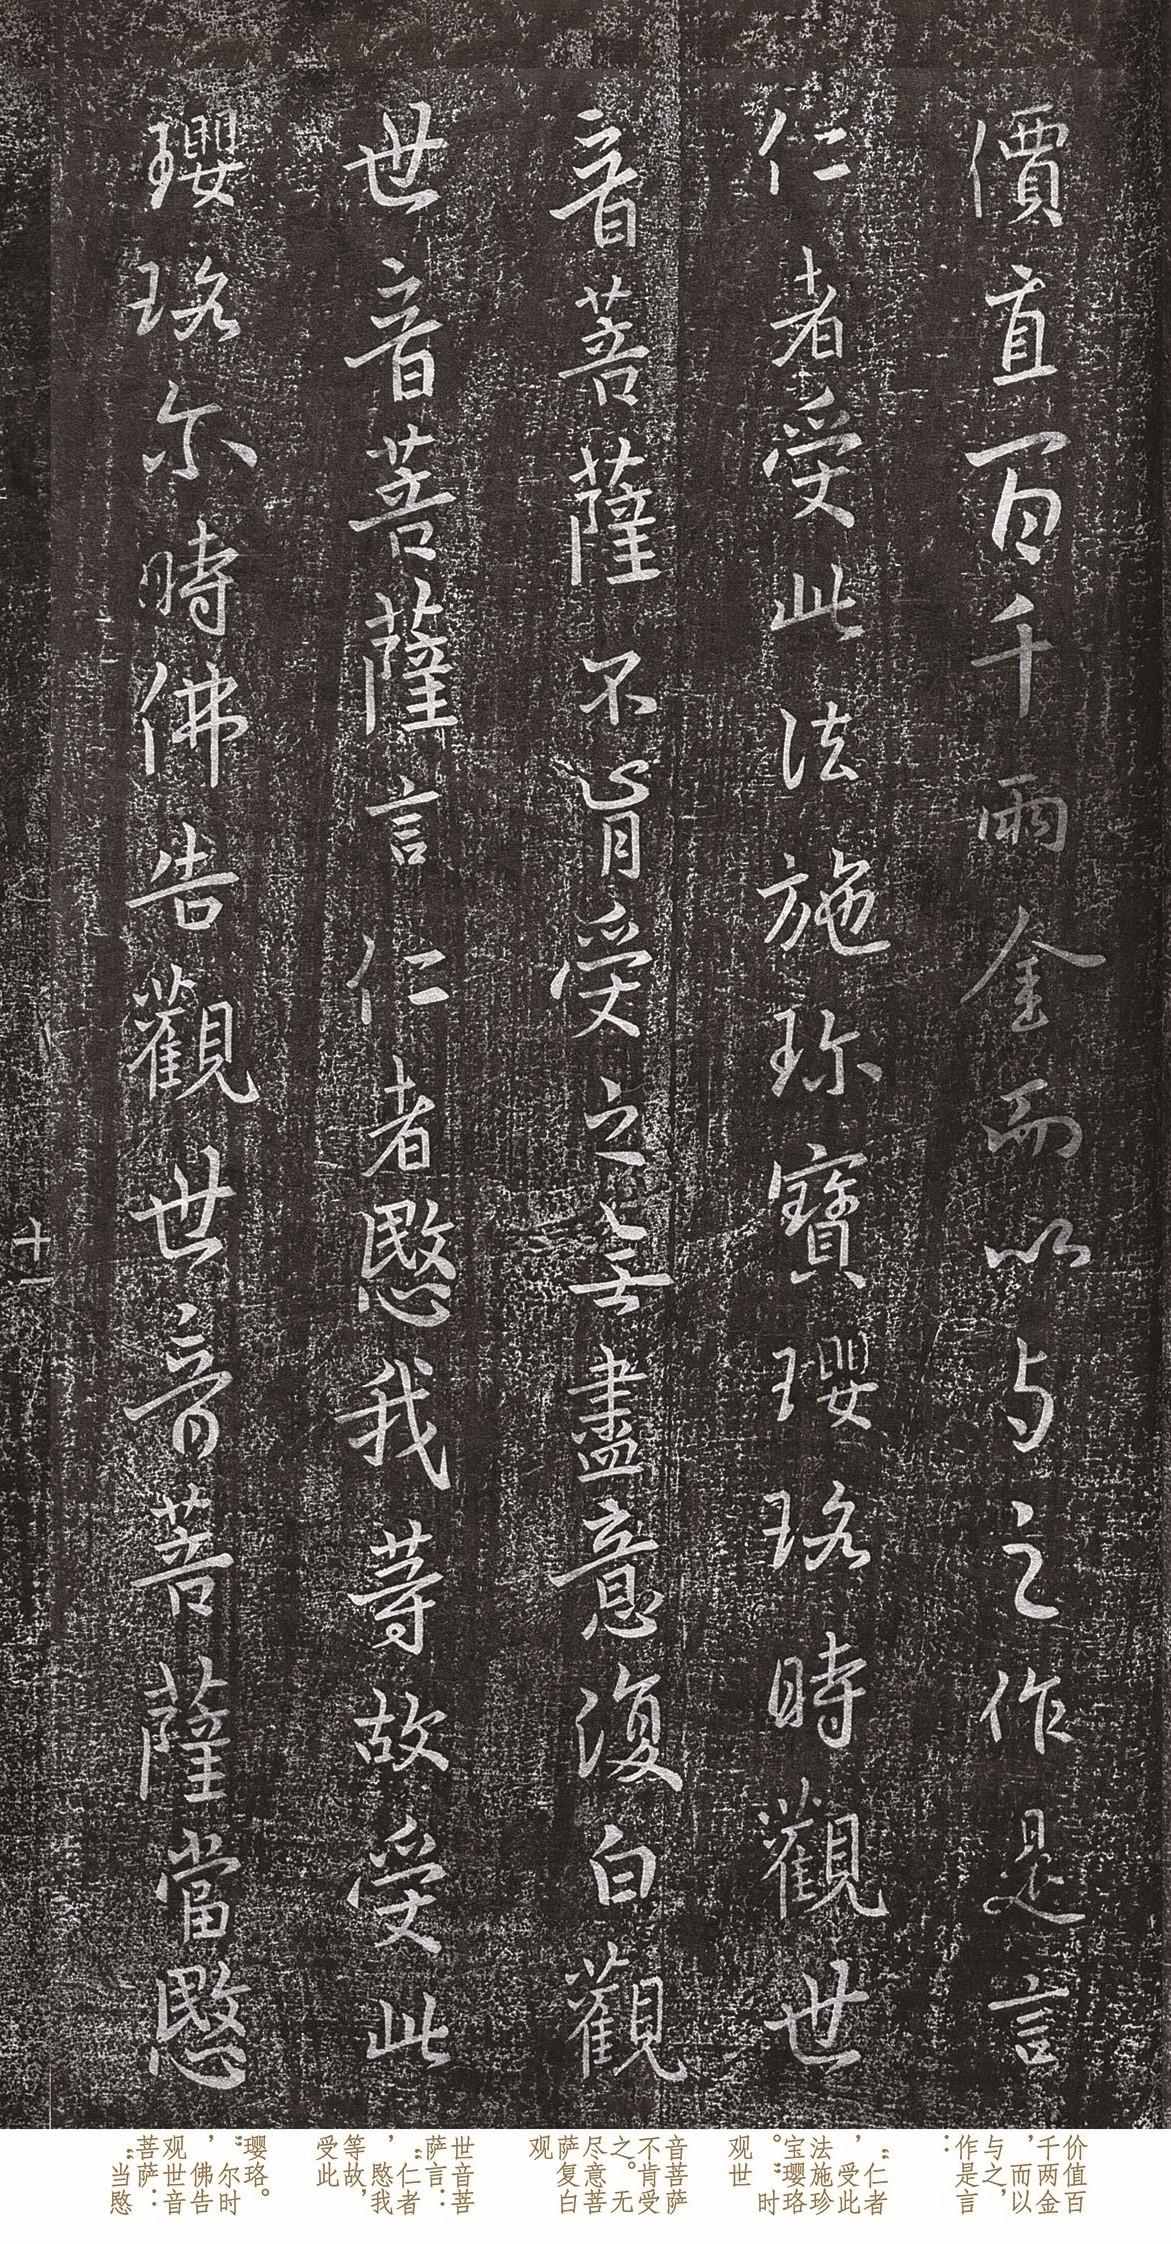 價直百千兩金而以与之作是言
仁者受此法施珎寶瓔珞時觀世
音菩薩不肯受之無盡意復白觀
世音菩薩言仁者愍我等故受此
瓔珞尔時佛告觀世音菩薩當愍
十一
价值百
千两金
，而以
与之，
作是言
：
“仁者
，受此
法施珍
宝璎珞
。”时
观世
音菩萨
不肯受
之。无
尽意菩
萨复白
观
世音菩
萨言：
“仁者
，愍我
等故，
受此
璎珞。
”尔时
，佛告
观世音
菩萨：
“当愍